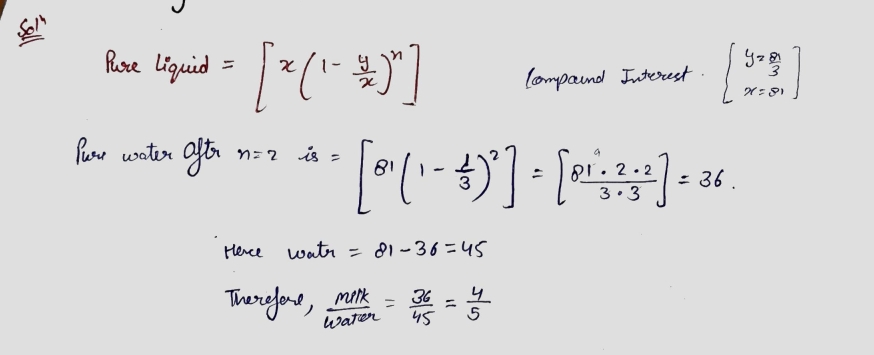 Solⁿ
Pure Liquid = [x(1 - y/x)ⁿ]
Compaund Interest. [y = 81/3 x = 81]
Pure water aftr n=2 is = [81(1 - 1/3)²] = [81·2·2/3·3] = 36.
9
Hence watr = 81-36 = 45
Therefore, milk/water = 36/45 = 4/5